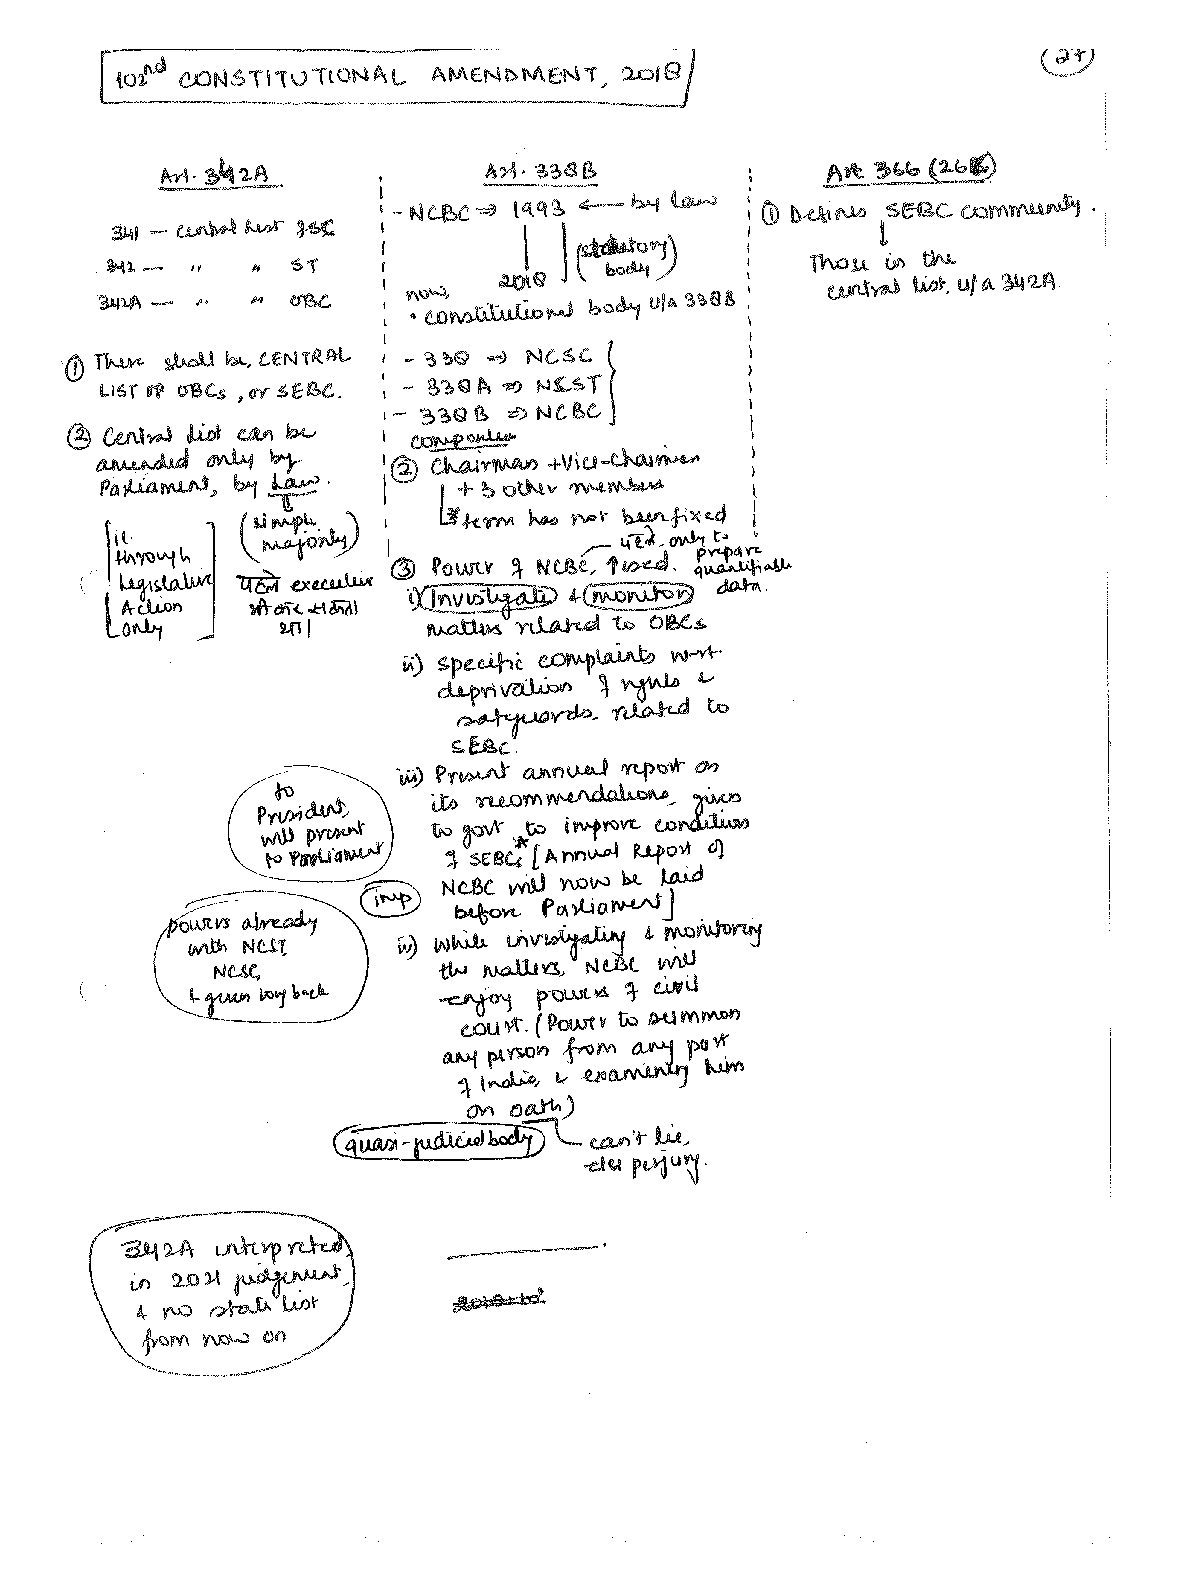 27
102nd CONSTITUTIONAL AMENDMENT, 2018
Art. 342A
341 — Central List of SC
342 — " " ST
342A — " " OBC
① There shall be, CENTRAL
LIST OF OBCs, or SEBC.
② Central list can be
amended only by
Parliament, by Law.
(simple
majority)
ie.
through
legislative
Action
only
पहले executive
भी कर सकता
था।
to
President,
will present
to Parliament
powers already
with NCST,
NCSC,
& given way back
342A interpreted,
in 2021 judgement,
& no state list
from now on
Art. 338B
- NCBC ⇒ 1993 ← by law
(statutory
body)
2018
now,
• constitutional body u/a 338B
- 338 ⇒ NCSC
- 338A ⇒ NCST
- 338B ⇒ NCBC
② Chairman + Vice-Chairman
+ 3 other members
* term has not been fixed
पहले only to
prepare
quantifiable
data.
③ Power of NCBC, ↑sed.
i) Investigate & monitor
matters related to OBCs
ii) specific complaints w.r.t.
deprivation of rights &
safguards related to
SEBC.
iii) Present annual report on
its recommendations, given
to govt to improve conditions
of SEBCs [Annual Report of
NCBC will now be laid
before Parliament]
imp
iv) While investigating & monitoring
the matters, NCBC will
enjoy powers of civil
court. (Power to summon
any person from any part
of India, & examining him
on oath)
quasi-judicial body
can't lie,
else perjury.
Art. 366 (26C)
① Defines SEBC community.
Those in the
central list, u/a 342A.